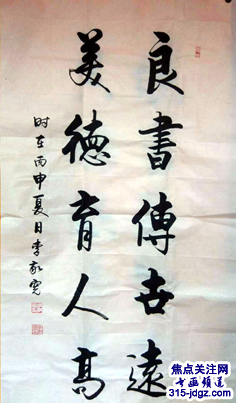 良書傳古遠
美德育人高
时在丙申夏日李家寛
焦点关注网
书画频道
315-jdgz.com